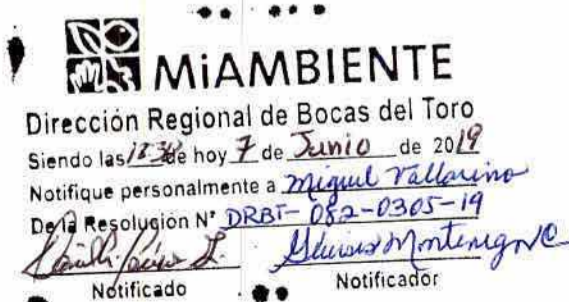 MiAMBIENTE
Dirección Regional de Bocas del Toro
Siendo las de hoy 7 de Junio de 2019
Notifique personalmente a Miguel Vallarino
De la Resolución N° DRBT-082-0305-19
Montenegro
Notificado Notificador